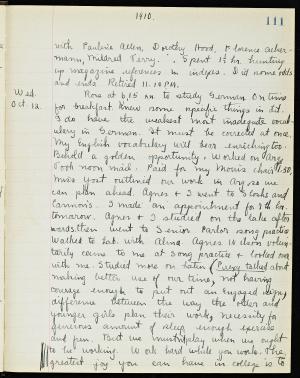 1910.
111
with Pauline Allen, Dorothy Hood, Florence Acker-
mann, Mildred Perry. Spent 1½ hr. hunting
up magazine references in indexes. Did some odds
and ends. Retired 11.14 P.M.
Wed.
Oct. 12.
Rose at 6.15 A.M. to study German. On time
for breakfast. Knew some specific things in Lit.
I do have the weakest most inadequate vocab-
ulary in German. It must be corrected at once.
My English vocabulary will bear enriching too.
Behold a golden opportunity. Worked on Arg.
Tooh noon made. Paid for my Morris chair 1.50.
Miss Yost outlined our work in Arg so we
can plan ahead. Agnes & I went to Cooks and
Cannon's. I made an appointment for 9th hr.
tomorrow. Agnes & I studied on the lake after
wards, then went to Senior Parlor song practice.
Walked to Lab. with Alma. Agnes Wilson volun-
tarily came to me at song practice & looked over
with me. Studied more on Latin. Puego talked about
making better use of our time, not having
courage enough to put out an Engaged sign,
difference between the way the older and
younger girls plan their work, necessity for
generous amount of sleep enough exercise
and fun. But we mustn't play when we ought
to be working. Work hard while you work. The
greatest joy you can have in college is to